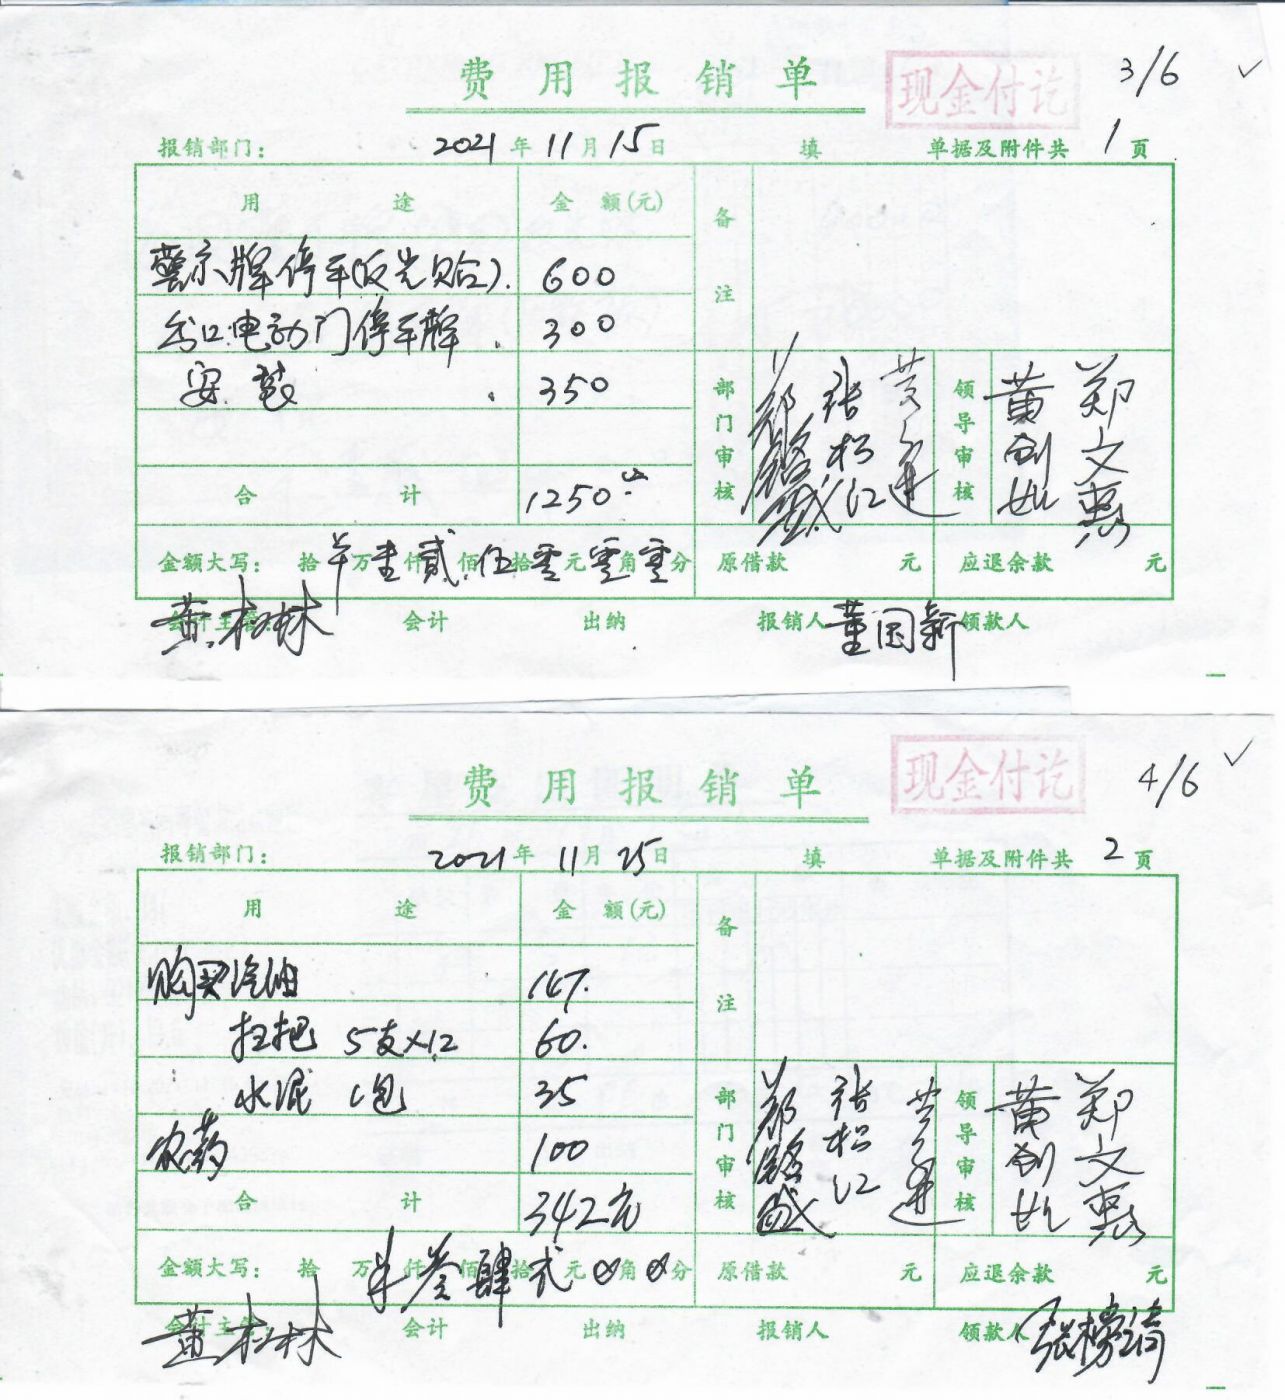 费用报销单 现金付讫 3/6 ✓
报销部门: 2021年11月15日 填 单据及附件共 1 页
用途 金额(元) 备注
警示牌停车(反光贴). 600
出口电动门停车牌. 300
安装. 350
部门审核 张松江 领导审核 郑文惠
合计 1250.00
金额大写: 拾 万 壹 仟 贰 佰 伍 拾 零 元 零 角 零 分 原借款 元 应退余款 元
会计主管 黄松林 会计 出纳 报销人 董国新 领款人
费用报销单 现金付讫 4/6 ✓
报销部门: 2021年11月25日 填 单据及附件共 2 页
用途 金额(元) 备注
购买汽油 147.
扫把 5支×12 60.
水泥 1包 35
农药 100
部门审核 张松江 领导审核 郑文惠
合计 342元
金额大写: 拾 万 仟 叁 佰 肆 拾 贰 元 0 角 0 分 原借款 元 应退余款 元
会计主管 黄松林 会计 出纳 报销人 领款人